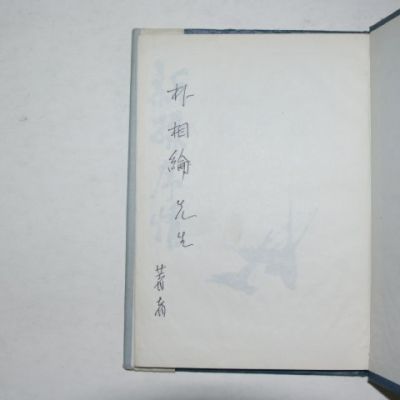 朴相綸先生
著者